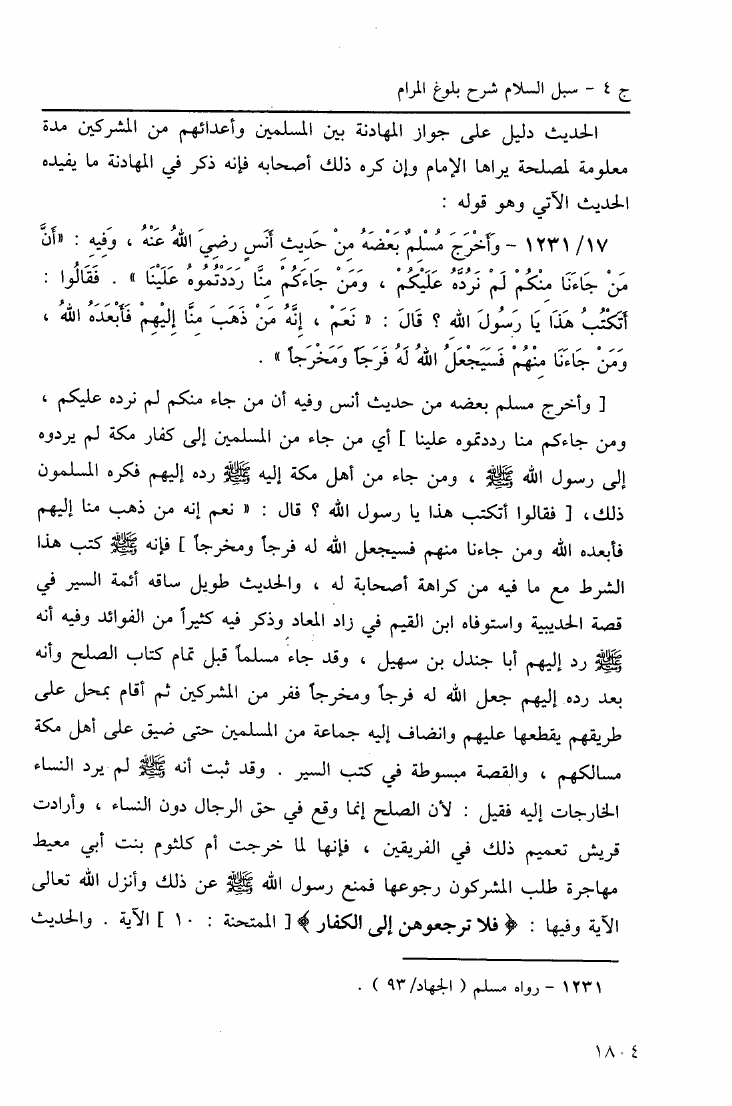 ج ٤ - سبل السلام شرح بلوغ المرام
الحديث دليل على جواز المهادنة بين المسلمين وأعدائهم من المشركين مدة
معلومة لمصلحة يراها الإمام وإن كره ذلك أصحابه فإنه ذكر في المهادنة ما يفيده
الحديث الآتي وهو قوله :
١٢٣١/١٧ - وَأَخْرَجَ مُسْلِمٌ بَعْضَهُ مِنْ حَدِيثِ أَنَسٍ رضِيَ اللهُ عَنْهُ ، وَفِيهِ : «أَنَّ
مَنْ جَاءَنَا مِنْكُمْ لَمْ نَرُدَّهُ عَلَيْكُمْ ، وَمَنْ جَاءَكُمْ مِنَّا رَدَدْتُمُوهُ عَلَيْنَا » . فَقَالُوا :
أَتَكْتُبُ هَذَا يَا رَسُولَ الله ؟ قَالَ : « نَعَمْ ، إِنَّهُ مَنْ ذَهَبَ مِنَّا إِلَيْهِمْ فَأَبْعَدَهُ اللهُ ،
وَمَنْ جَاءَنَا مِنْهُمْ فَسَيَجْعَلُ اللهُ لَهُ فَرَجاً وَمَخْرَجاً » .
[ وأخرج مسلم بعضه من حديث أنس وفيه أن من جاء منكم لم نرده عليكم ،
ومن جاءكم منا رددتموه علينا ] أي من جاء من المسلمين إلى كفار مكة لم يردوه
إلى رسول الله ﷺ ، ومن جاء من أهل مكة إليه ﷺ رده إليهم فكره المسلمون
ذلك، [ فقالوا أتكتب هذا يا رسول الله ؟ قال : « نعم إنه من ذهب منا إليهم
فأبعده الله ومن جاءنا منهم فسيجعل الله له فرجاً ومخرجاً ] فإنه ﷺ كتب هذا
الشرط مع ما فيه من كراهة أصحابة له ، والحديث طويل ساقه أئمة السير في
قصة الحديبية واستوفاه ابن القيم في زاد المعاد وذكر فيه كثيراً من الفوائد وفيه أنه
ﷺ رد إليهم أبا جندل بن سهيل ، وقد جاء مسلماً قبل تمام كتاب الصلح وأنه
بعد رده إليهم جعل الله له فرجاً ومخرجاً ففر من المشركين ثم أقام بمحل على
طريقهم يقطعها عليهم وانضاف إليه جماعة من المسلمين حتى ضيق على أهل مكة
مسالكهم ، والقصة مبسوطة في كتب السير . وقد ثبت أنه ﷺ لم يرد النساء
الخارجات إليه فقيل : لأن الصلح إنما وقع في حق الرجال دون النساء ، وأرادت
قريش تعميم ذلك في الفريقين ، فإنها لما خرجت أم كلثوم بنت أبي معيط
مهاجرة طلب المشركون رجوعها فمنع رسول الله ﷺ عن ذلك وأنزل الله تعالى
الآية وفيها : ﴿ فلا ترجعوهن إلى الكفار ﴾ [ الممتحنة : ١٠ ] الآية . والحديث
١٢٣١ - رواه مسلم ( الجهاد/٩٣ ) .
١٨٠٤